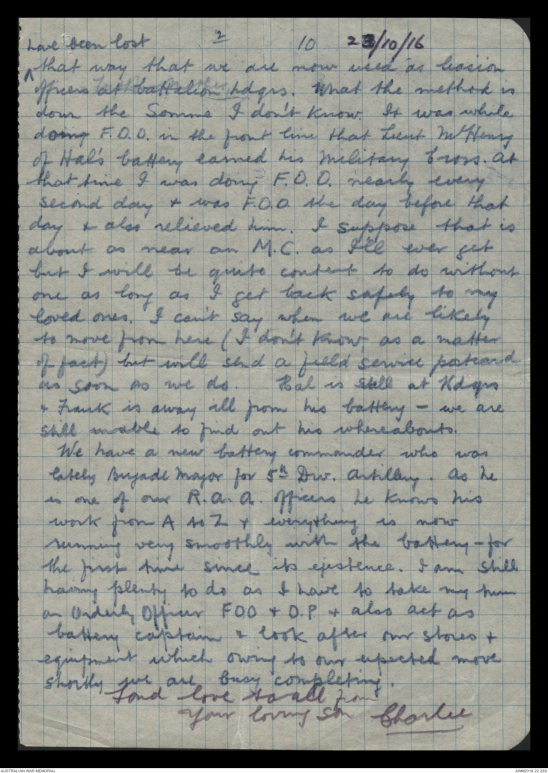 2
10 23/10/16
have been lost
^ that way that we are now used as liasion
officers at battalion Hdqrs. What the method is
down the Somme I don't know. It was while
doing F.O.O. in the front line that Lieut McHenry
of Hal's battery earned his Military Cross. At
that time I was doing F.O.O. nearly every
second day & was F.O.O the day before that
day & also relieved him. I suppose that is
about as near an M.C. as I'll ever get
but I will be quite content to do without
one as long as I get back safely to my
loved ones. I can't say when we are likely
to move from here (I don't know as a matter
of fact) but will send a field service postcard
as soon as we do. Hal is still at Hdqrs
& Frank is away ill from his battery - we are
still unable to find out his whereabouts.
We have a new battery commander who was
lately Brigade Major for 5th Div. Artillery. As he
is one of our R.A.A. officers he knows his
work from A to Z & everything is now
running very smoothly with the battery - for
the first time since its existence. I am still
having plenty to do as I have to take my turn
as Orderly Officer FOO & O.P. & also act as
battery captain & look after our stores &
equipment which owing to our expected move
shortly we are busy completing.
Fond love to all from
Your loving son Charlie
AUSTRALIAN WAR MEMORIAL